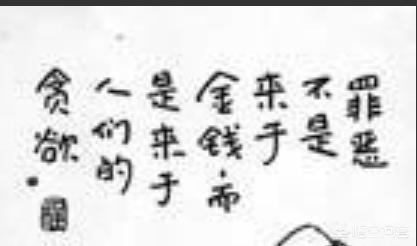 罪恶
不是
来于
金钱,而
是来于
人们的
贪欲.